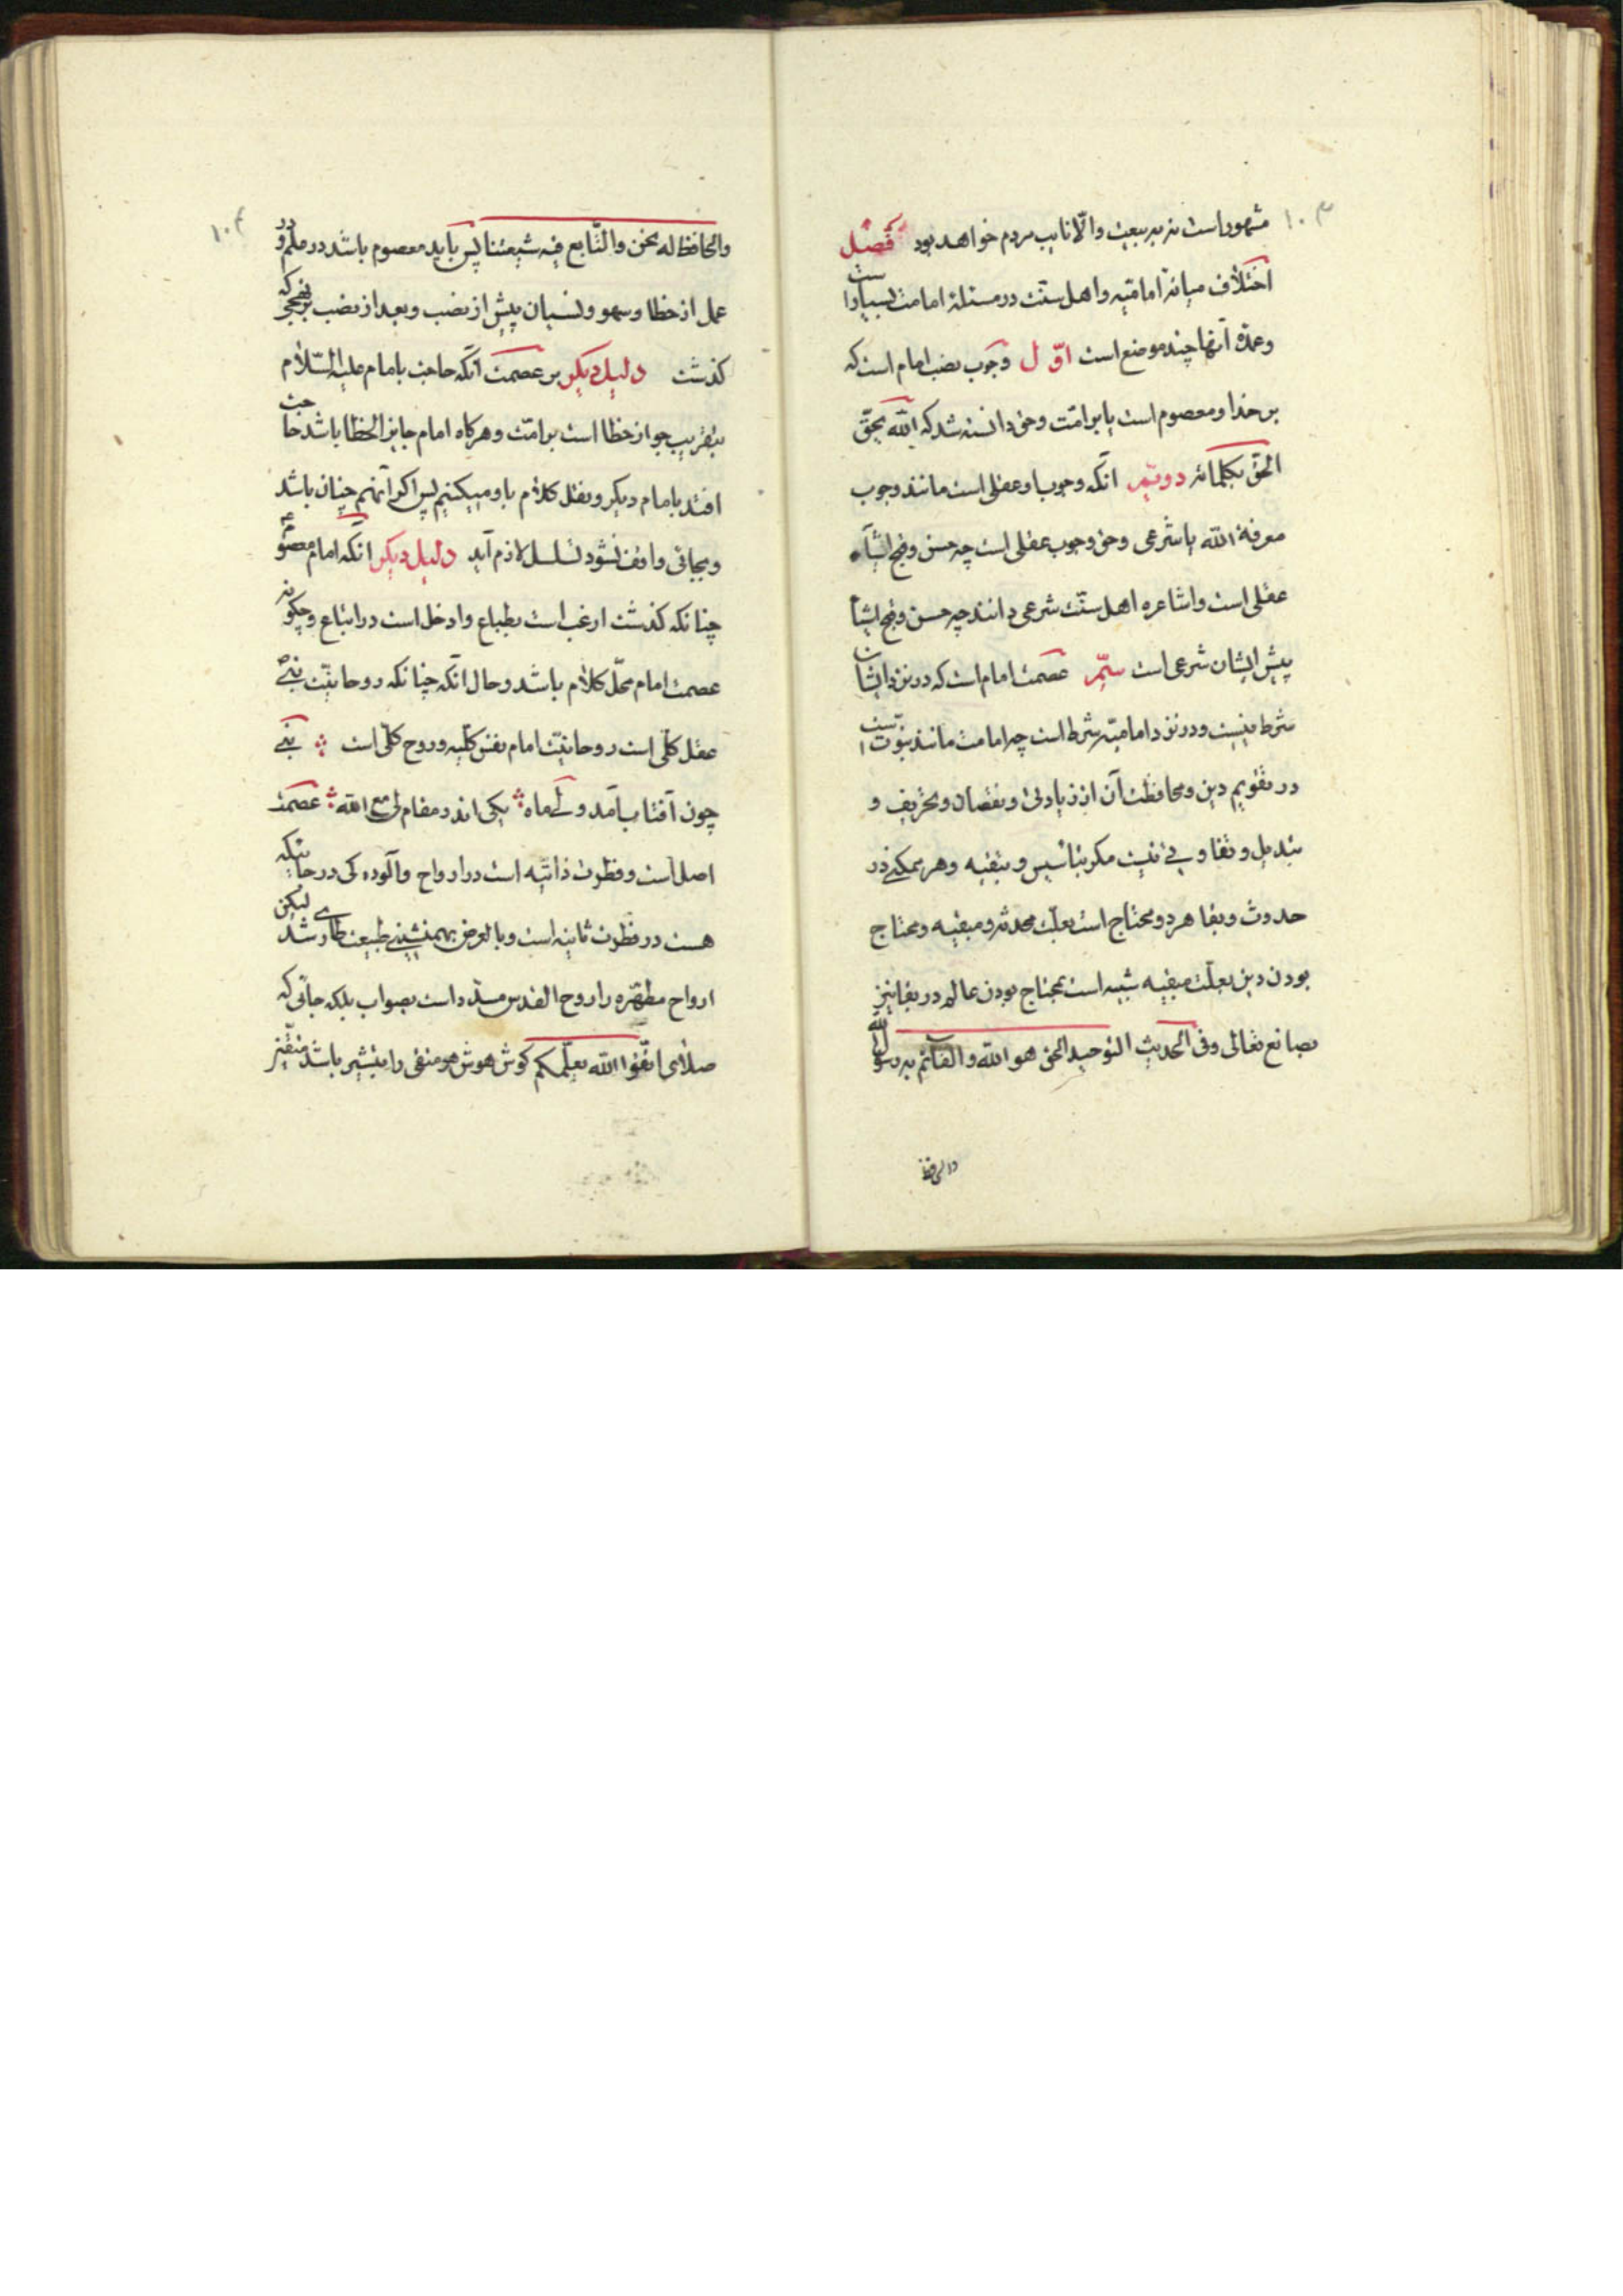 ۱۰۳
مشهود است نه به بیعت والّا نایب مردم خواهد بود فصل
اختلاف میانهٔ امامیّه و اهل سنّت در مسئلهٔ امامت بسیار است
و عمدهٔ آنها چند موضع است اوّل وجوب نصب امام است که
بر خدا و معصوم است یا بر امّت وحق دانسته شد که الله یحقّ
الحق بکلماته دویّم انکه وجوب او عقلی است مانند وجوب
معرفة الله یا شرعی وحق وجوب عقلی است چه حسن و قبح اشیاء
عقلی است و اشاعره اهل سنّت شرعی دانند چه حسن و قبح اشیا
پیش ایشان شرعی است سیّم عصمت امام است که در نزد ایشان
شرط نیست و در نزد امامیّه شرط است چه امامت مانند نبوّت است
در تقویم دین و محافظت آن از زیادتی و نقصان و تحریف و
تبدیل و تفاوتی نیست مکر بتاسیس و تبقیه و هر ممکنی در
حدوث و بقا هر دو محتاج است بعلّت محدثه و مبقیه و محتاج
بودن دین بعلّت مبقیه شبیه است بمحتاج بودن عالم در بقا نیز
بصانع تعالی وفی الحدیث التوحید الحق هو الله والقائم به رسول الله
والحافظ
۱۰۴
والحافظ له نحن والتّابع فیه شیعتنا پس باید معصوم باشد در علم و در
عمل از خطا و سهو و نسیان پیش از نصب و بعد از نصب بر نهجی که
کذشت دلیل دیکر بر عصمت انکه حاجت بامام علیه السّلام
بتقریب جواز خطا است بر امّت و هر کاه امام جایز الخطا باشد حاجت
افتد بامام دیکر و نقل کلام باو میکنیم پس اکر آنهم چنان باشد
و بجائی واقف نشود تسلسل لازم آید دلیل دیکر انکه امام معصوم
چنانکه کذشت ارغب است بطباع وادخل است در اتباع و چکونه
عصمت امام محلّ کلام باشد و حال انکه چنانکه روحانیّت نبیّ ص
عقل کلّی است روحانیّت امام نفس کلّیه و روح کلّی است نبی
چون آفتاب آمد ولی ماه یکی اند در مقام لی مع الله عصمت
اصل است و فطرت ذاتیّه است در ارواح و آلوده کی در حالتیکه
هست در فطرت ثانیه است و بالعرض بهمنشینی طبیعت طاری شد لیکن
ارواح مطهّره را روح القدس مسدّد است بصواب بلکه جائی که
صلای اتّقوا الله یعلّمکم کوش هوش هر متقی را مبشّر باشد متّقین